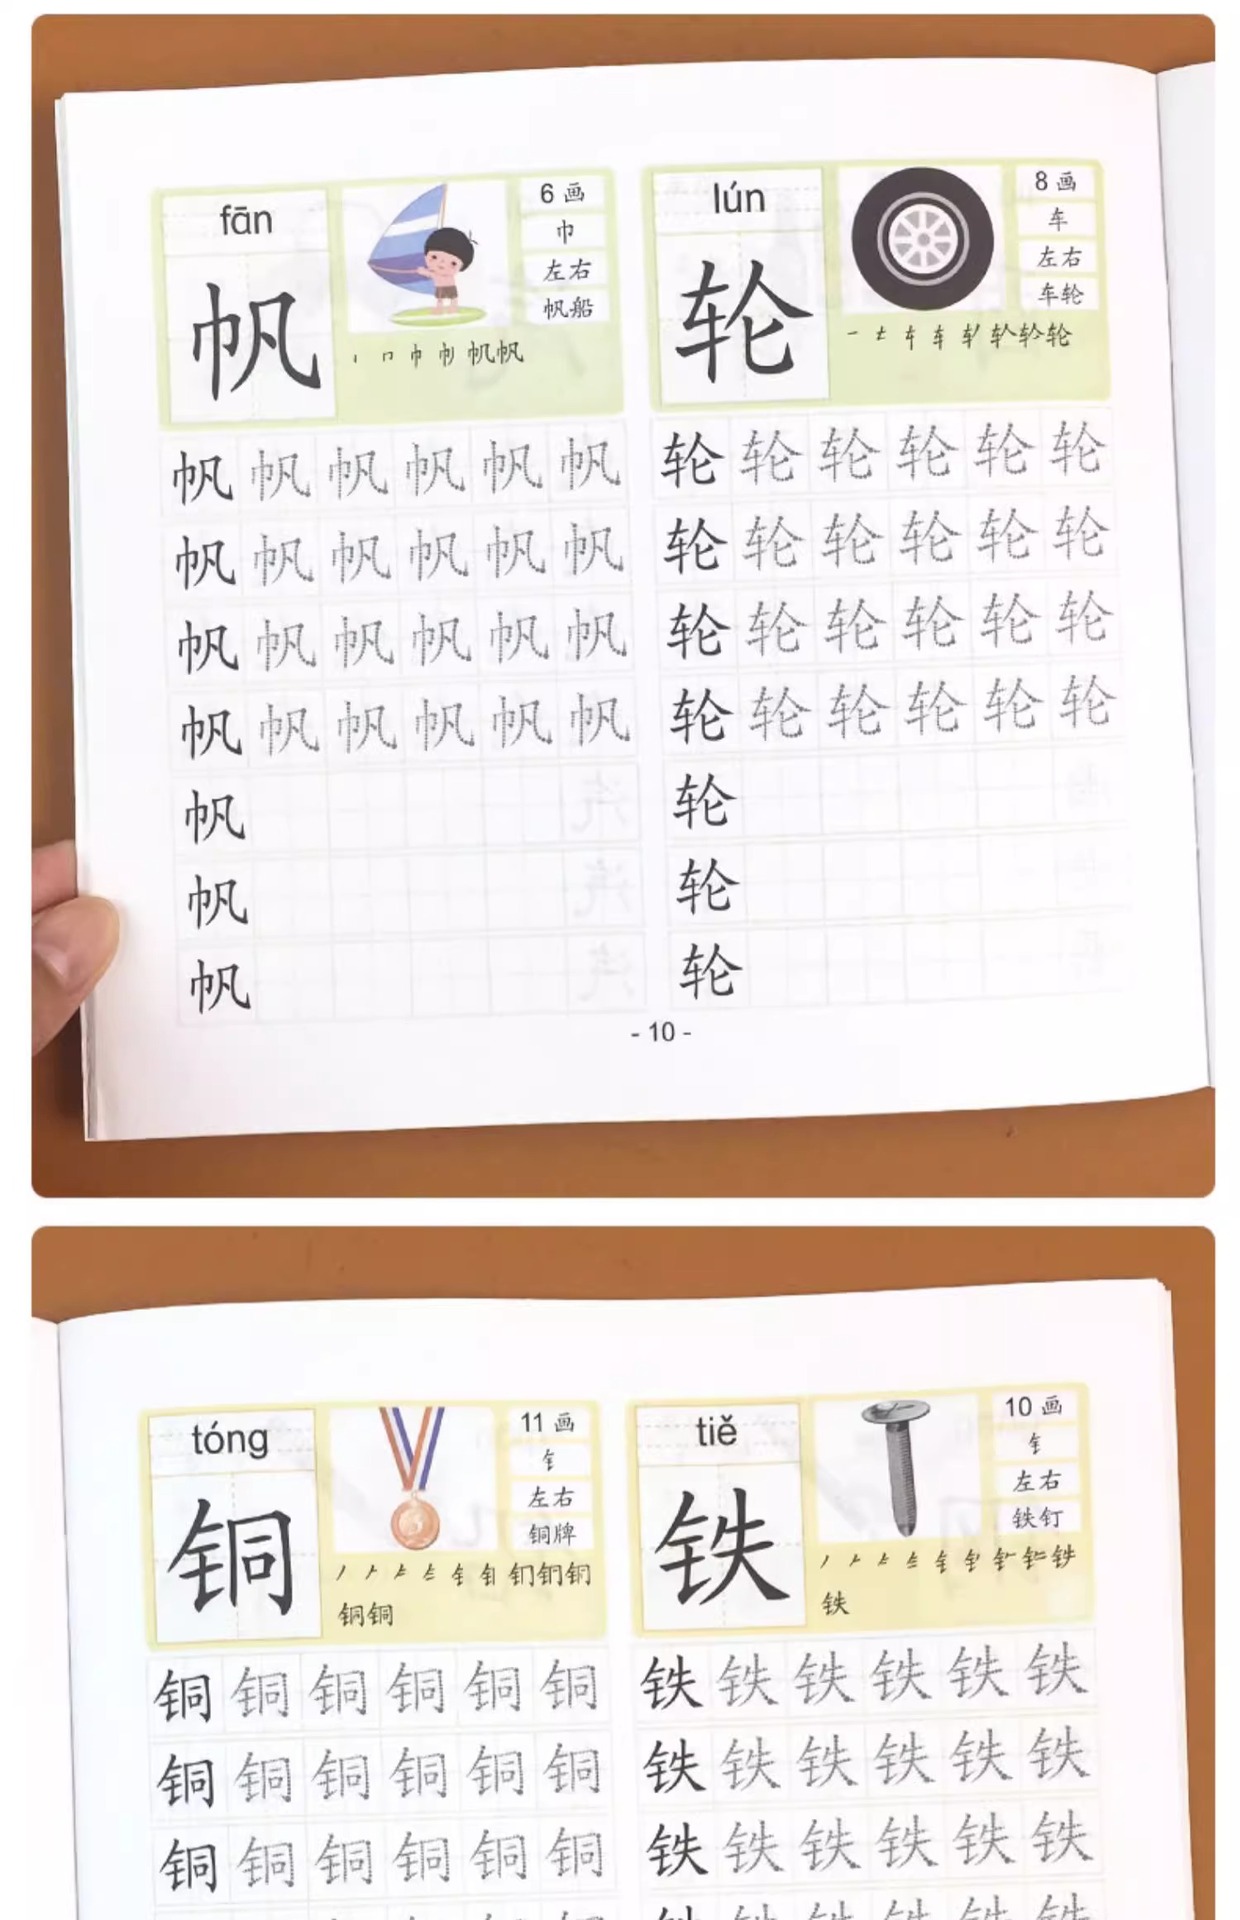 fān
帆
6 画
巾
左右
帆船
帆帆
lún
轮
8 画
车
左右
车轮
车 轮轮轮
帆 帆 帆 帆 帆 帆
帆 帆 帆 帆 帆 帆
帆 帆 帆 帆 帆 帆
帆 帆 帆 帆 帆 帆
帆
帆
帆
轮 轮 轮 轮 轮 轮
轮 轮 轮 轮 轮 轮
轮 轮 轮 轮 轮 轮
轮 轮 轮 轮 轮 轮
轮
轮
轮
- 10 -
tóng
铜
11 画
钅
左右
铜牌
铜铜
tiě
铁
10 画
钅
左右
铁钉
铁
铜 铜 铜 铜 铜 铜
铜 铜 铜 铜 铜 铜
铜 铜 铜 铜 铜 铜
铁 铁 铁 铁 铁 铁
铁 铁 铁 铁 铁 铁
铁 铁 铁 铁 铁 铁